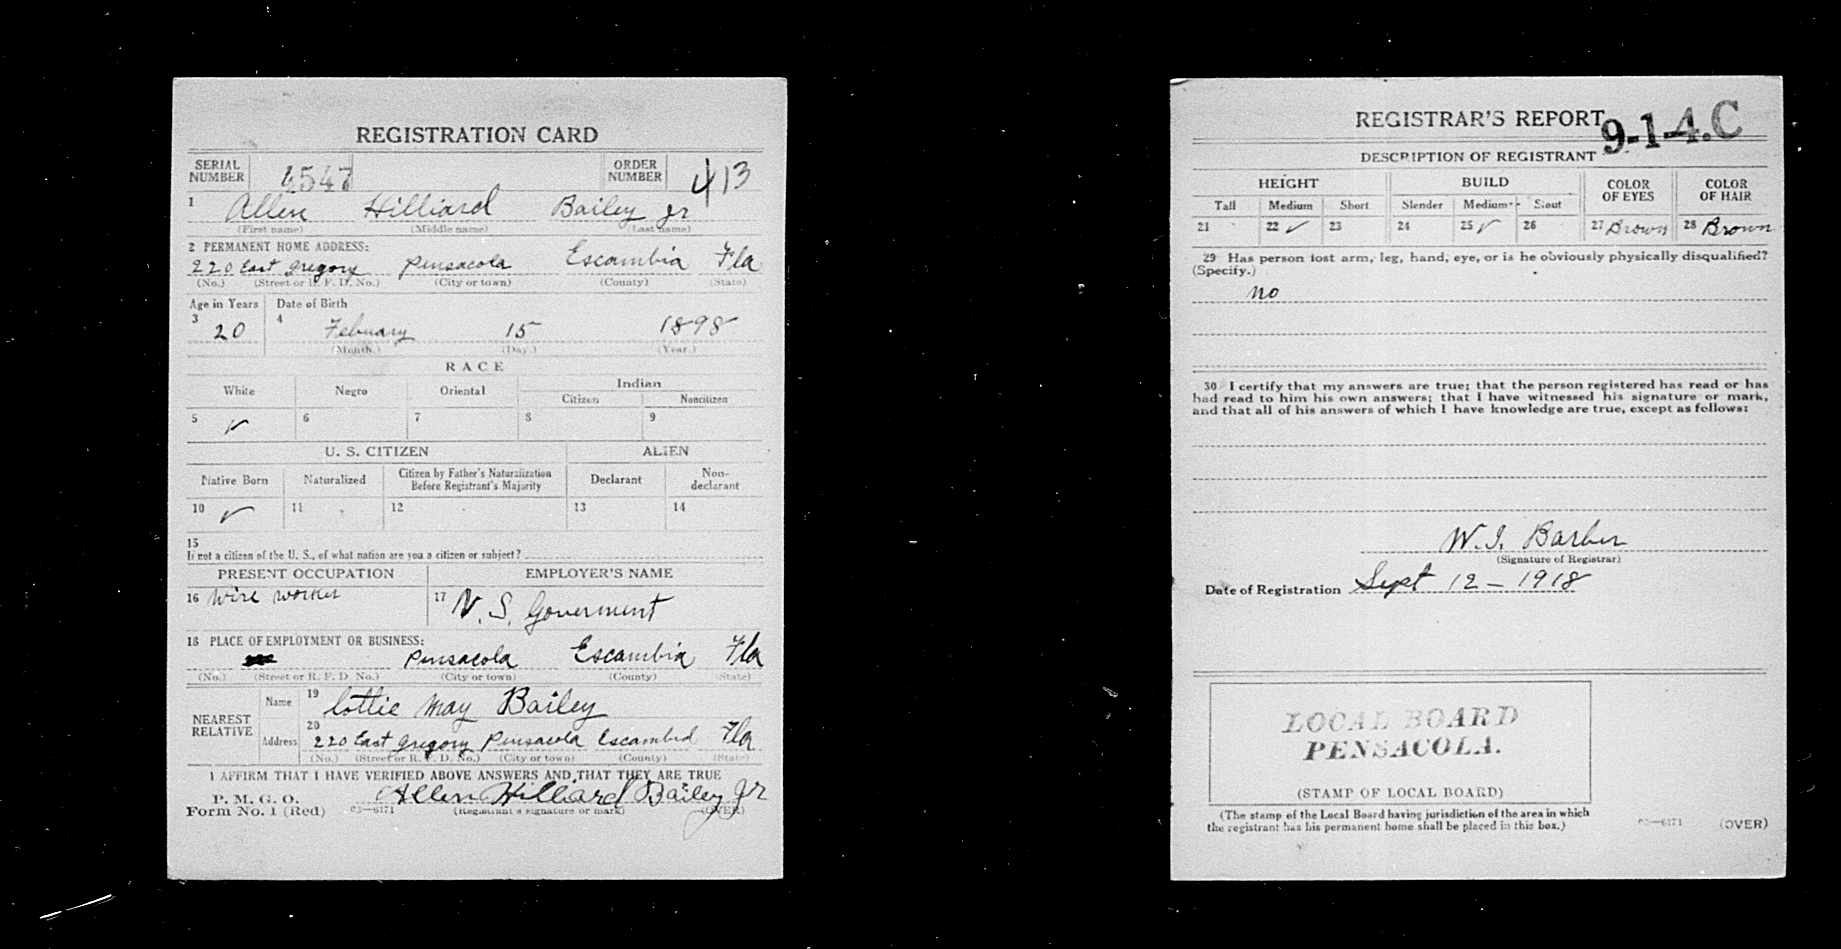 REGISTRATION CARD
SERIAL NUMBER 4547 ORDER NUMBER 413
1 Allen Hilliard Bailey Jr
(First name) (Middle name) (Last name)
2 PERMANENT HOME ADDRESS:
220 East Gregory Pensacola Escambia Fla
(No.) (Street or R. F. D. No.) (City or town) (County) (State)
Age in Years Date of Birth
3 20 4 Febuary 15 1898
(Month.) (Day.) (Year.)
RACE
White Negro Oriental Indian
Citizen Noncitizen
5 ✓ 6 7 8 9
U. S. CITIZEN ALIEN
Native Born Naturalized Citizen by Father's Naturalization Before Registrant's Majority Declarant Non-declarant
10 ✓ 11 12 13 14
15
If not a citizen of the U. S., of what nation are you a citizen or subject?
PRESENT OCCUPATION EMPLOYER'S NAME
16 Wire worker 17 U. S. Goverment
18 PLACE OF EMPLOYMENT OR BUSINESS:
Pensacola Escambia Fla
(No.) (Street or R. F. D. No.) (City or town) (County) (State)
NEAREST RELATIVE
Name 19 Lottie May Bailey
Address 20 220 East Gregory Pensacola Escambia Fla
(No.) (Street or R. F. D. No.) (City or town) (County) (State)
I AFFIRM THAT I HAVE VERIFIED ABOVE ANSWERS AND THAT THEY ARE TRUE
P. M. G. O.
Form No. 1 (Red) 03—6171 Allen Hilliard Bailey Jr
(Registrant's signature or mark) (OVER)
REGISTRAR'S REPORT 9-1-4.C
DESCRIPTION OF REGISTRANT
HEIGHT BUILD COLOR OF EYES COLOR OF HAIR
Tall Medium Short Slender Medium Stout
21 22 ✓ 23 24 25 ✓ 26 27 Brown 28 Brown
29 Has person lost arm, leg, hand, eye, or is he obviously physically disqualified?
(Specify.)
no
30 I certify that my answers are true; that the person registered has read or has
had read to him his own answers; that I have witnessed his signature or mark,
and that all of his answers of which I have knowledge are true, except as follows:
W. I. Barber
(Signature of Registrar)
Date of Registration Sept 12 - 1918
LOCAL BOARD
PENSACOLA.
(STAMP OF LOCAL BOARD)
(The stamp of the Local Board having jurisdiction of the area in which
the registrant has his permanent home shall be placed in this box.)
03—6171 (OVER)